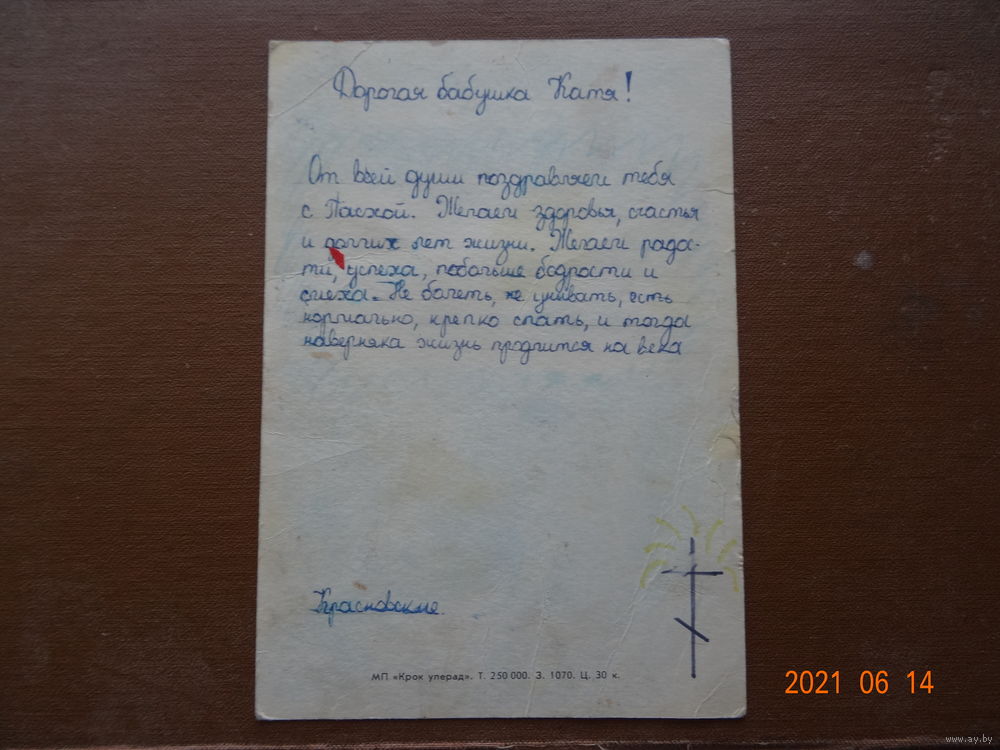 Дорогая бабушка Катя!
От всей души поздравляем тебя
с Пасхой. Желаем здоровья, счастья
и долгих лет жизни. Желаем радос-
ти, успеха, побольше бодрости и
смеха. Не болеть, не унывать, есть
нормально, крепко спать, и тогда
наверняка жизнь продлится на века
Красновские.
МП «Крок уперад». Т. 250 000. З. 1070. Ц. 30 к.
2021 06 14
www.ay.by